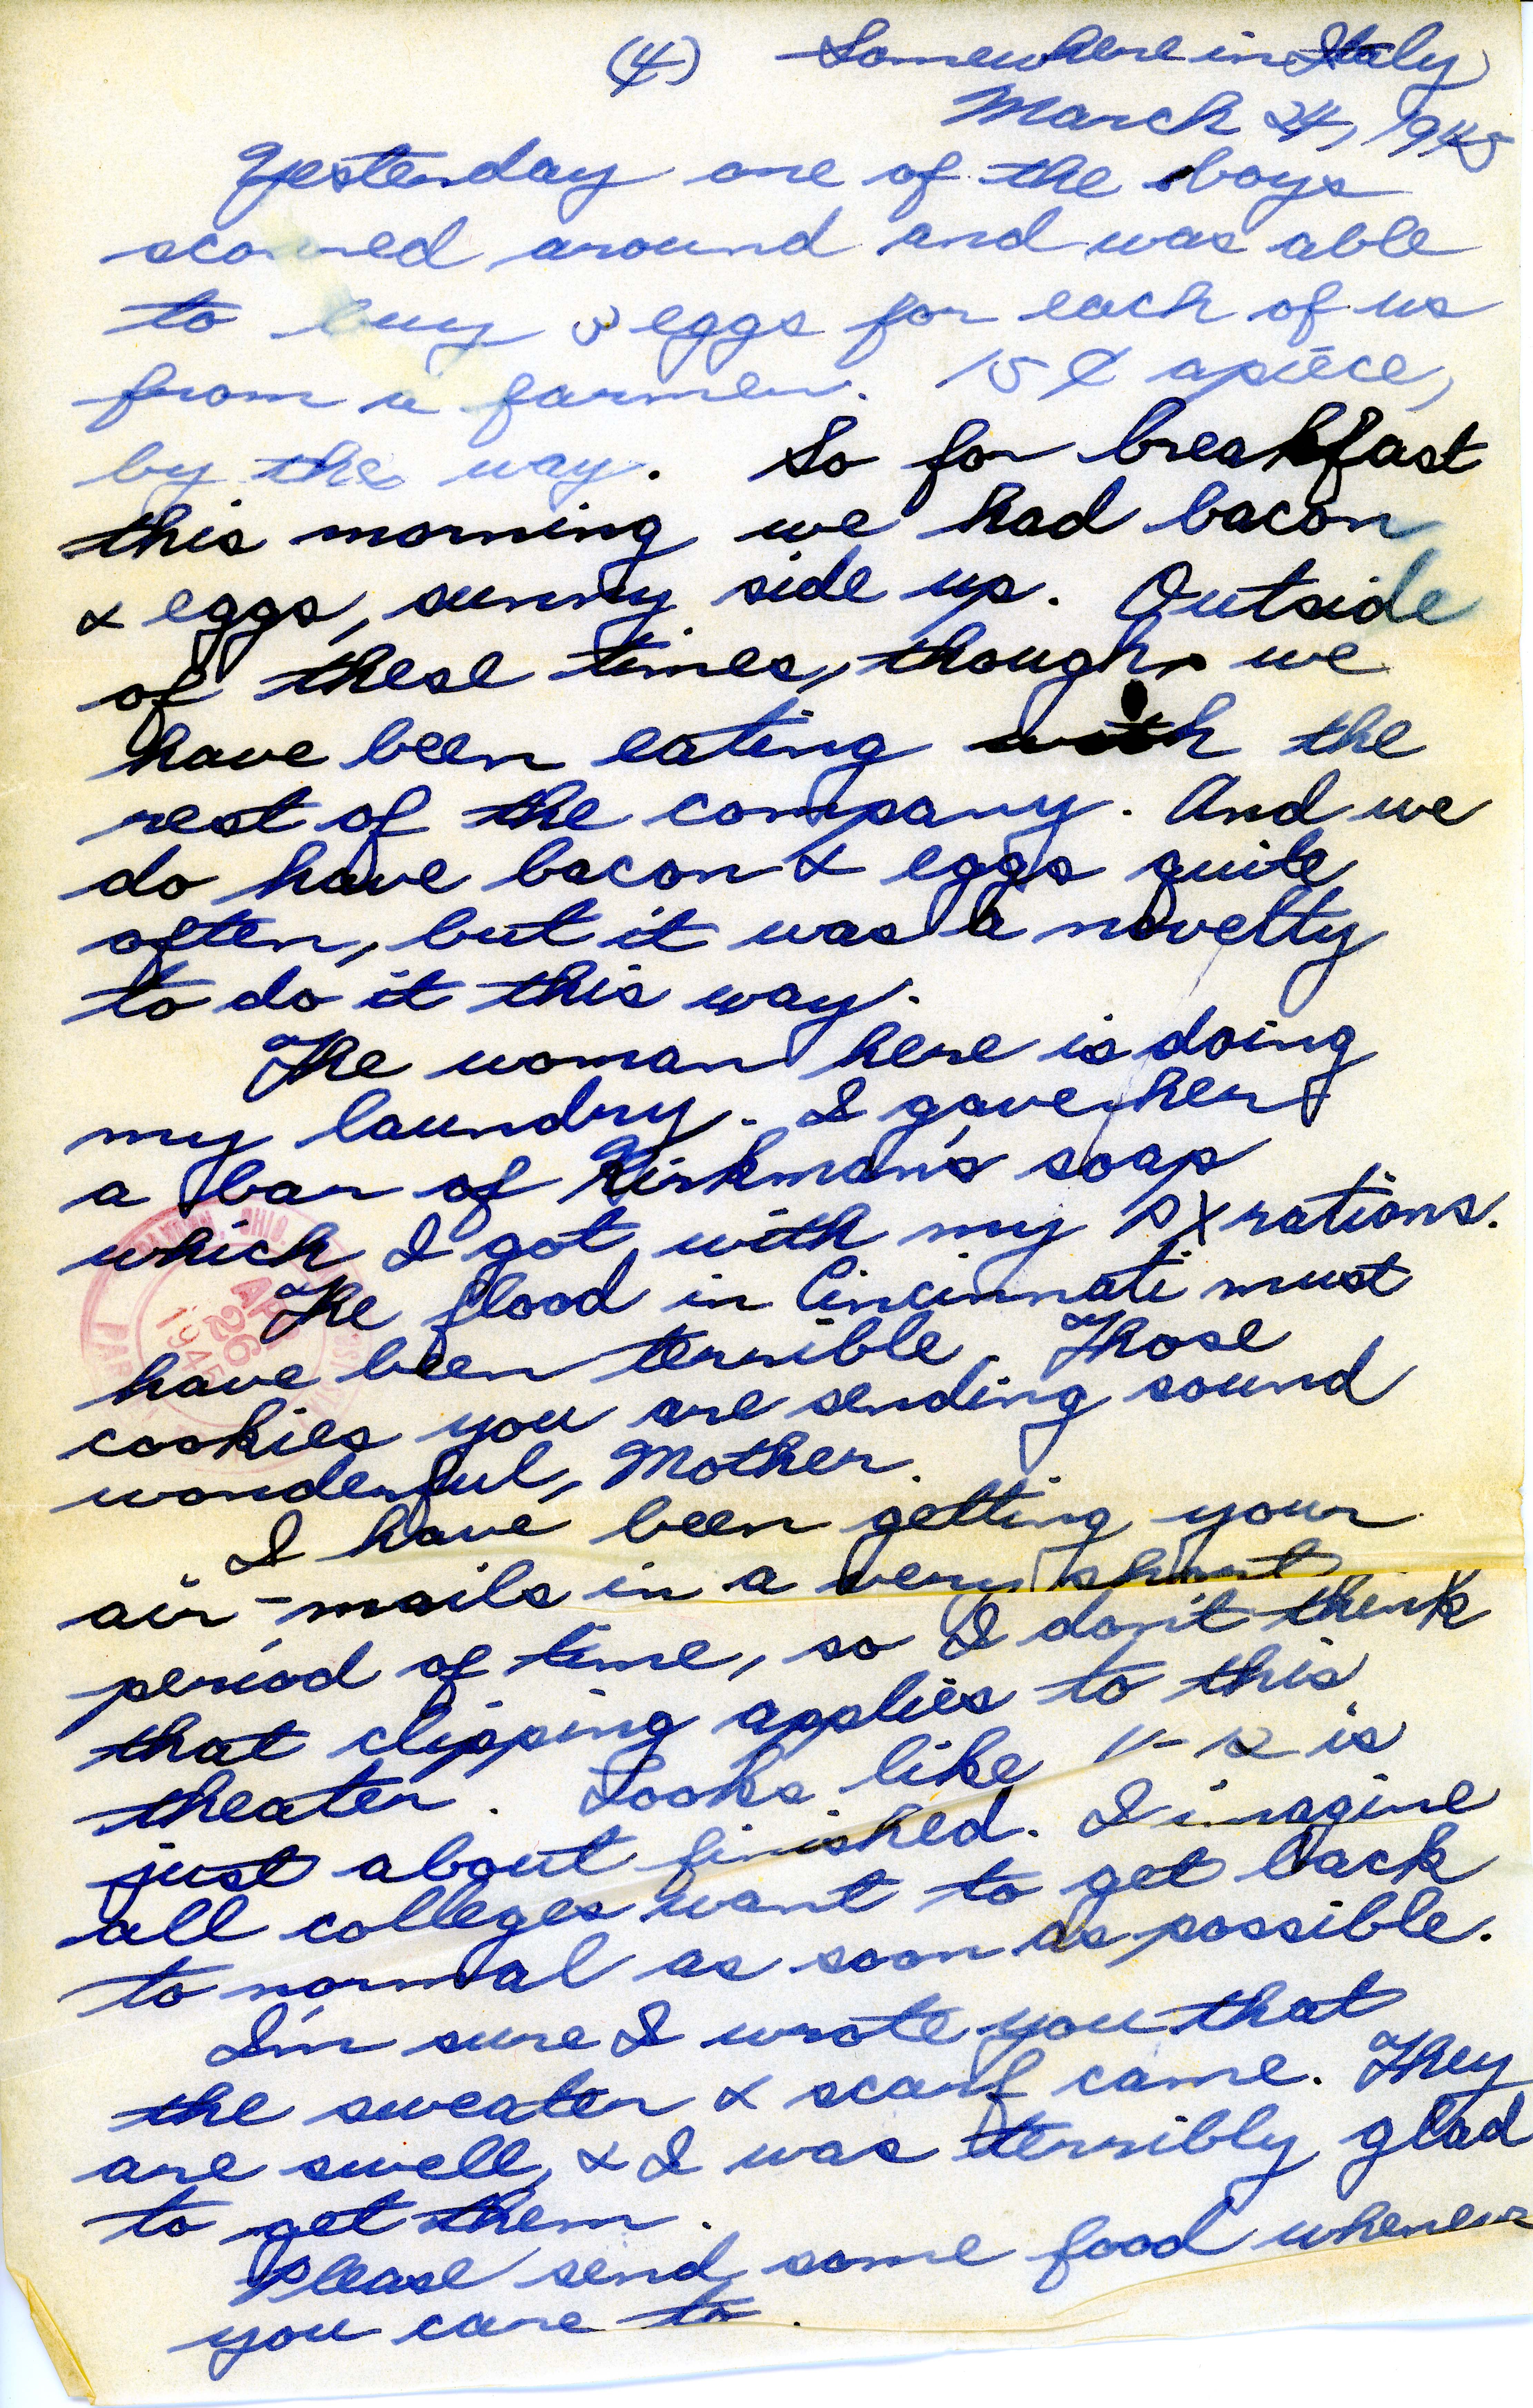 (4) Somewhere in Italy
March 24, 1945
Yesterday one of the boys
scoured around and was able
to buy 3 eggs for each of us
from a farmer. 15¢ apiece,
by the way. So for breakfast
this morning we had bacon
& eggs, sunny side up. Outside
of these times, though, we
have been eating with the
rest of the company. And we
do have bacon & eggs quite
often, but it was a novelty
to do it this way.
The woman here is doing
my laundry. I gave her
a bar of Kirkman's soap
which I got with my PX rations.
The flood in Cincinnati must
have been terrible. Those
cookies you are sending sound
wonderful, Mother.
I have been getting your
air-mails in a very short
period of time, so I don't think
that clipping applies to this
theater. Looks like V-12 is
just about finished. I imagine
all colleges want to get back
to normal as soon as possible.
I'm sure I wrote you that
the sweater & scarf came. They
are swell, & I was terribly glad
to get them.
Please send some food whenever
you care to.
OHIO
APR
26
1945